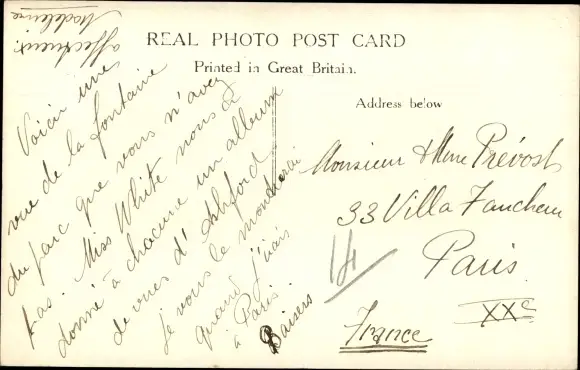 REAL PHOTO POST CARD
Printed in Great Britain.
Address below
Voici une
vue de la fontaine
du parc que vous n'avez
pas. Miss White nous a
donné à chacune un album
de vues d'Ashford
je vous le montrerai
quand j'irai
à Paris.
Baisers
affectueux.
Madeleine
Monsieur & Mme Prévost
33 Villa Faucheur
Paris
XXe
France
14